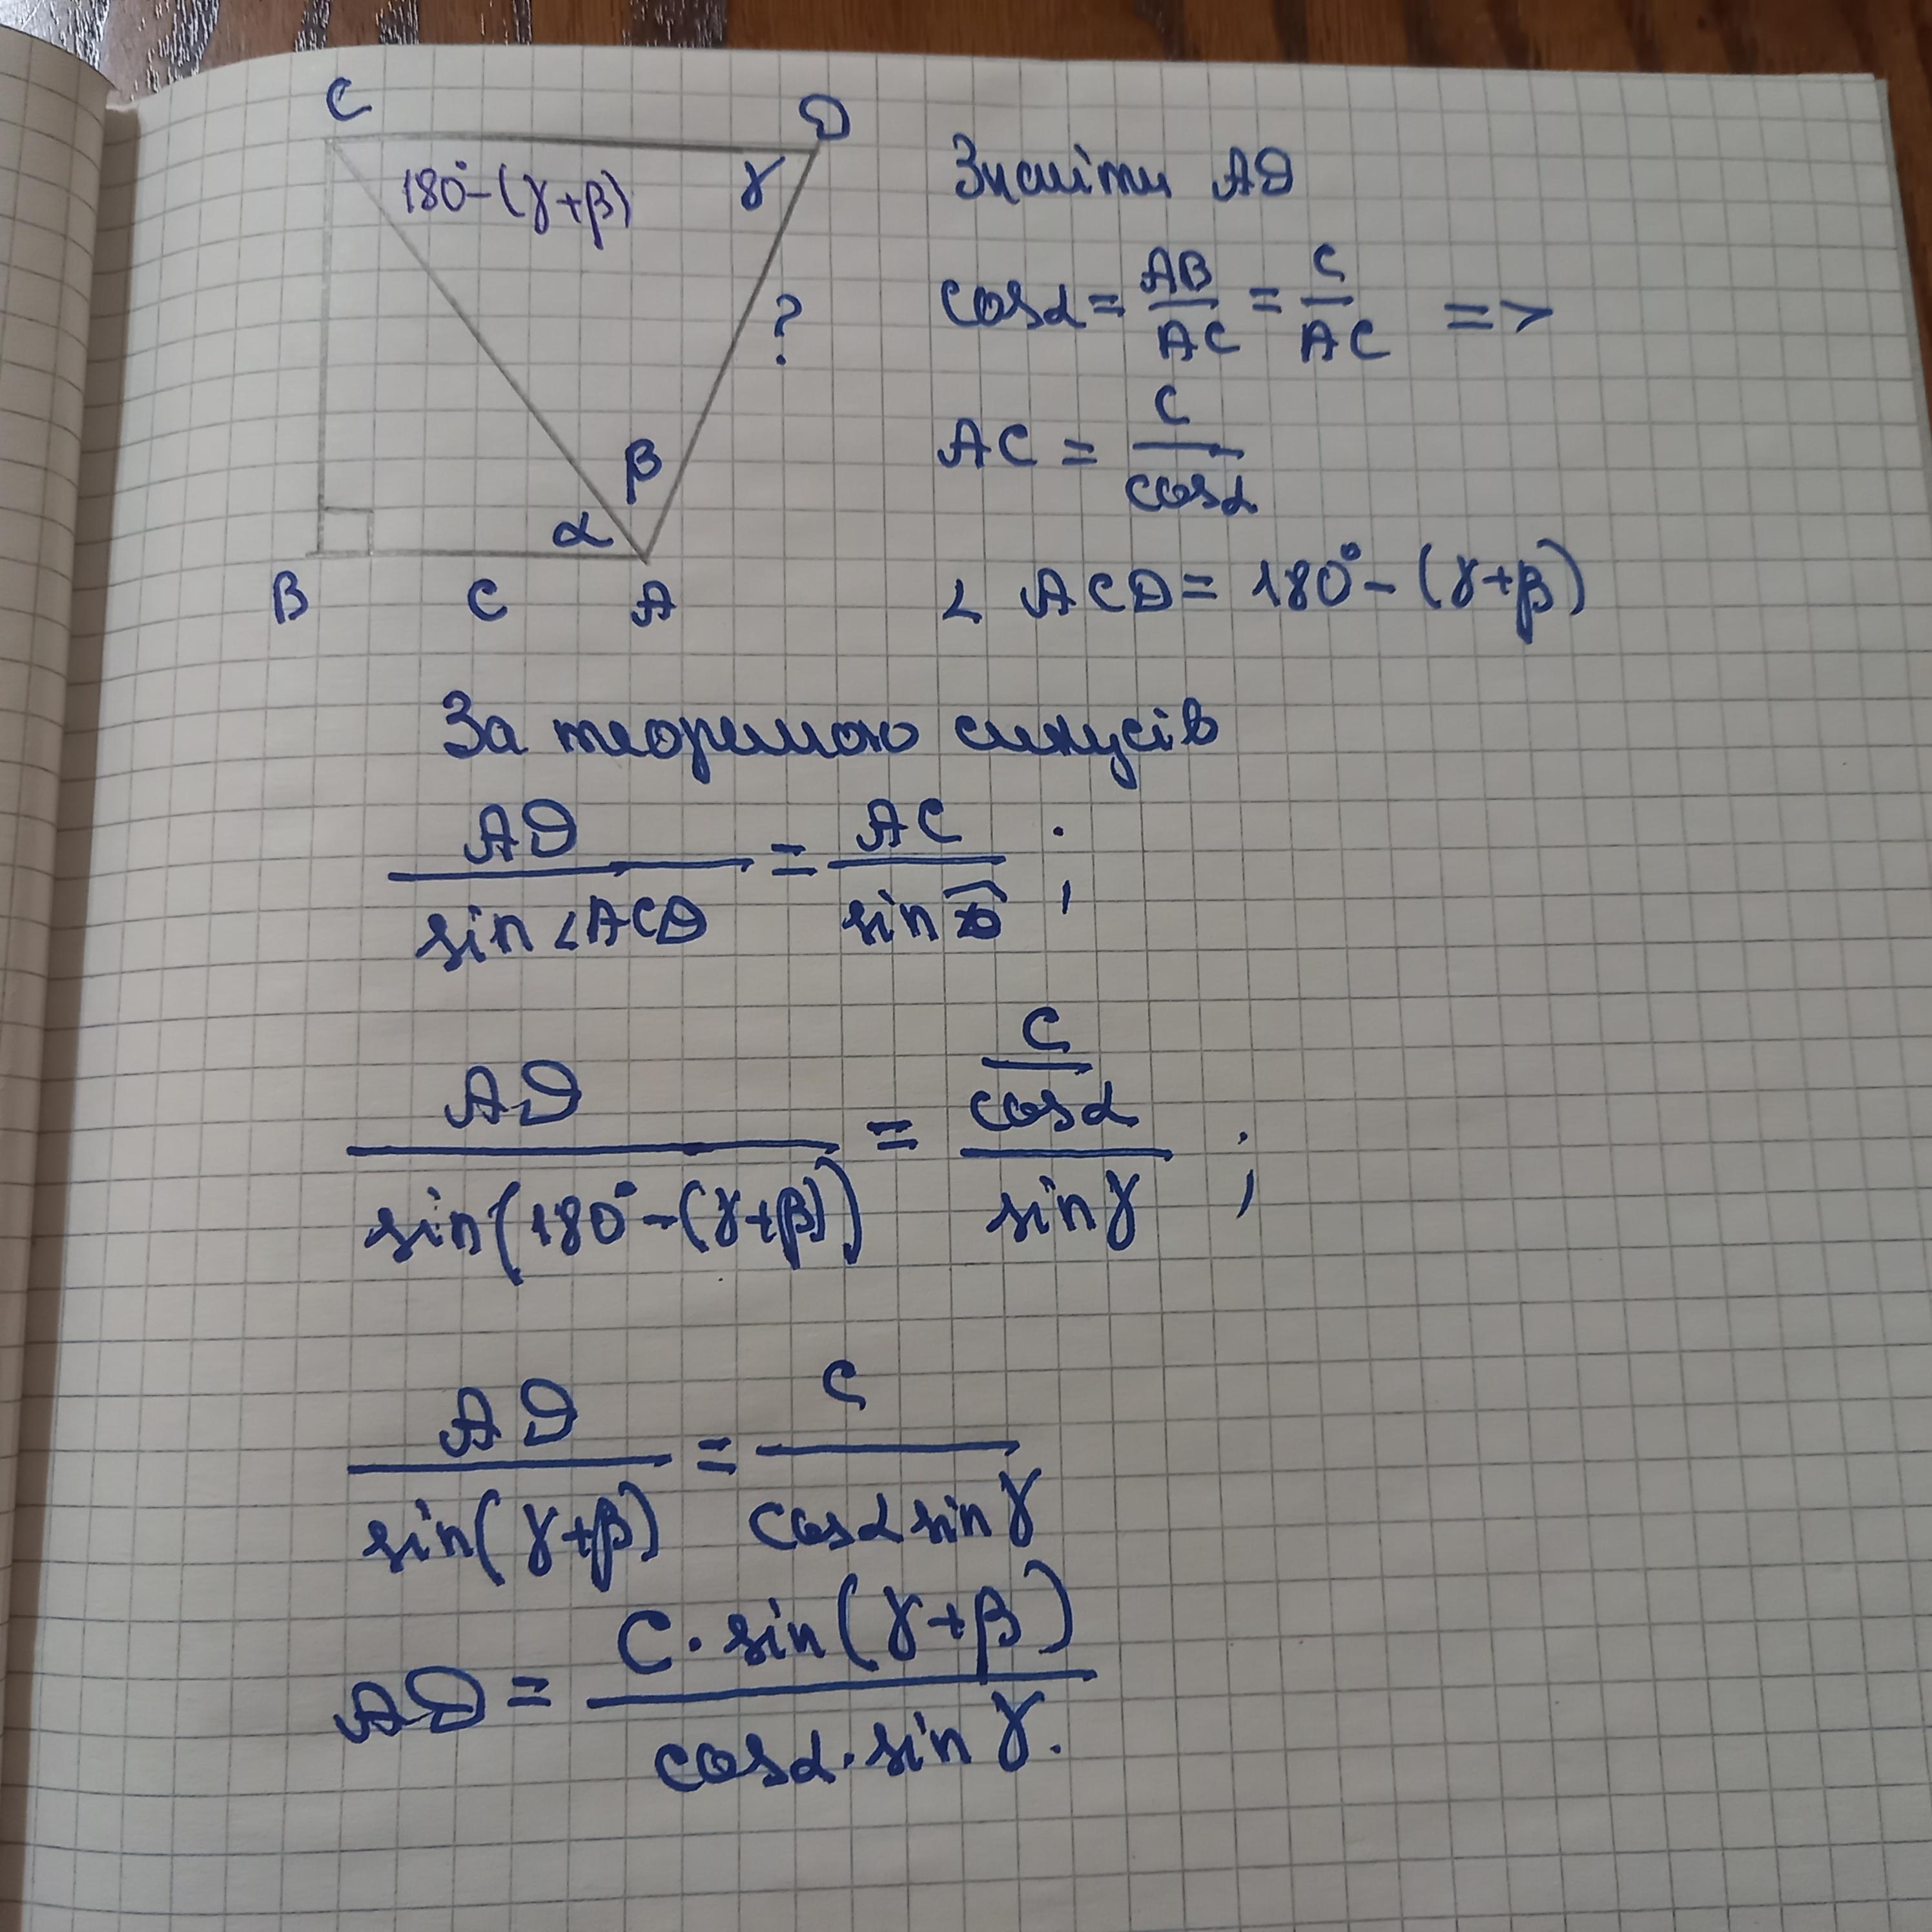 C D
180°-(γ+β) γ
?
β
α
B c A
Знайти AD
cosα = AB/AC = c/AC =>
AC = c/cosα
∠ ACD = 180° - (γ+β)
За теоремою синусів
AD/sin∠ACD = AC/sinD ;
AD/sin(180°-(γ+β)) = c/cosα/sinγ ;
AD/sin(γ+β) = c/cosα sinγ
AD = c · sin(γ+β)/cosα · sin γ.